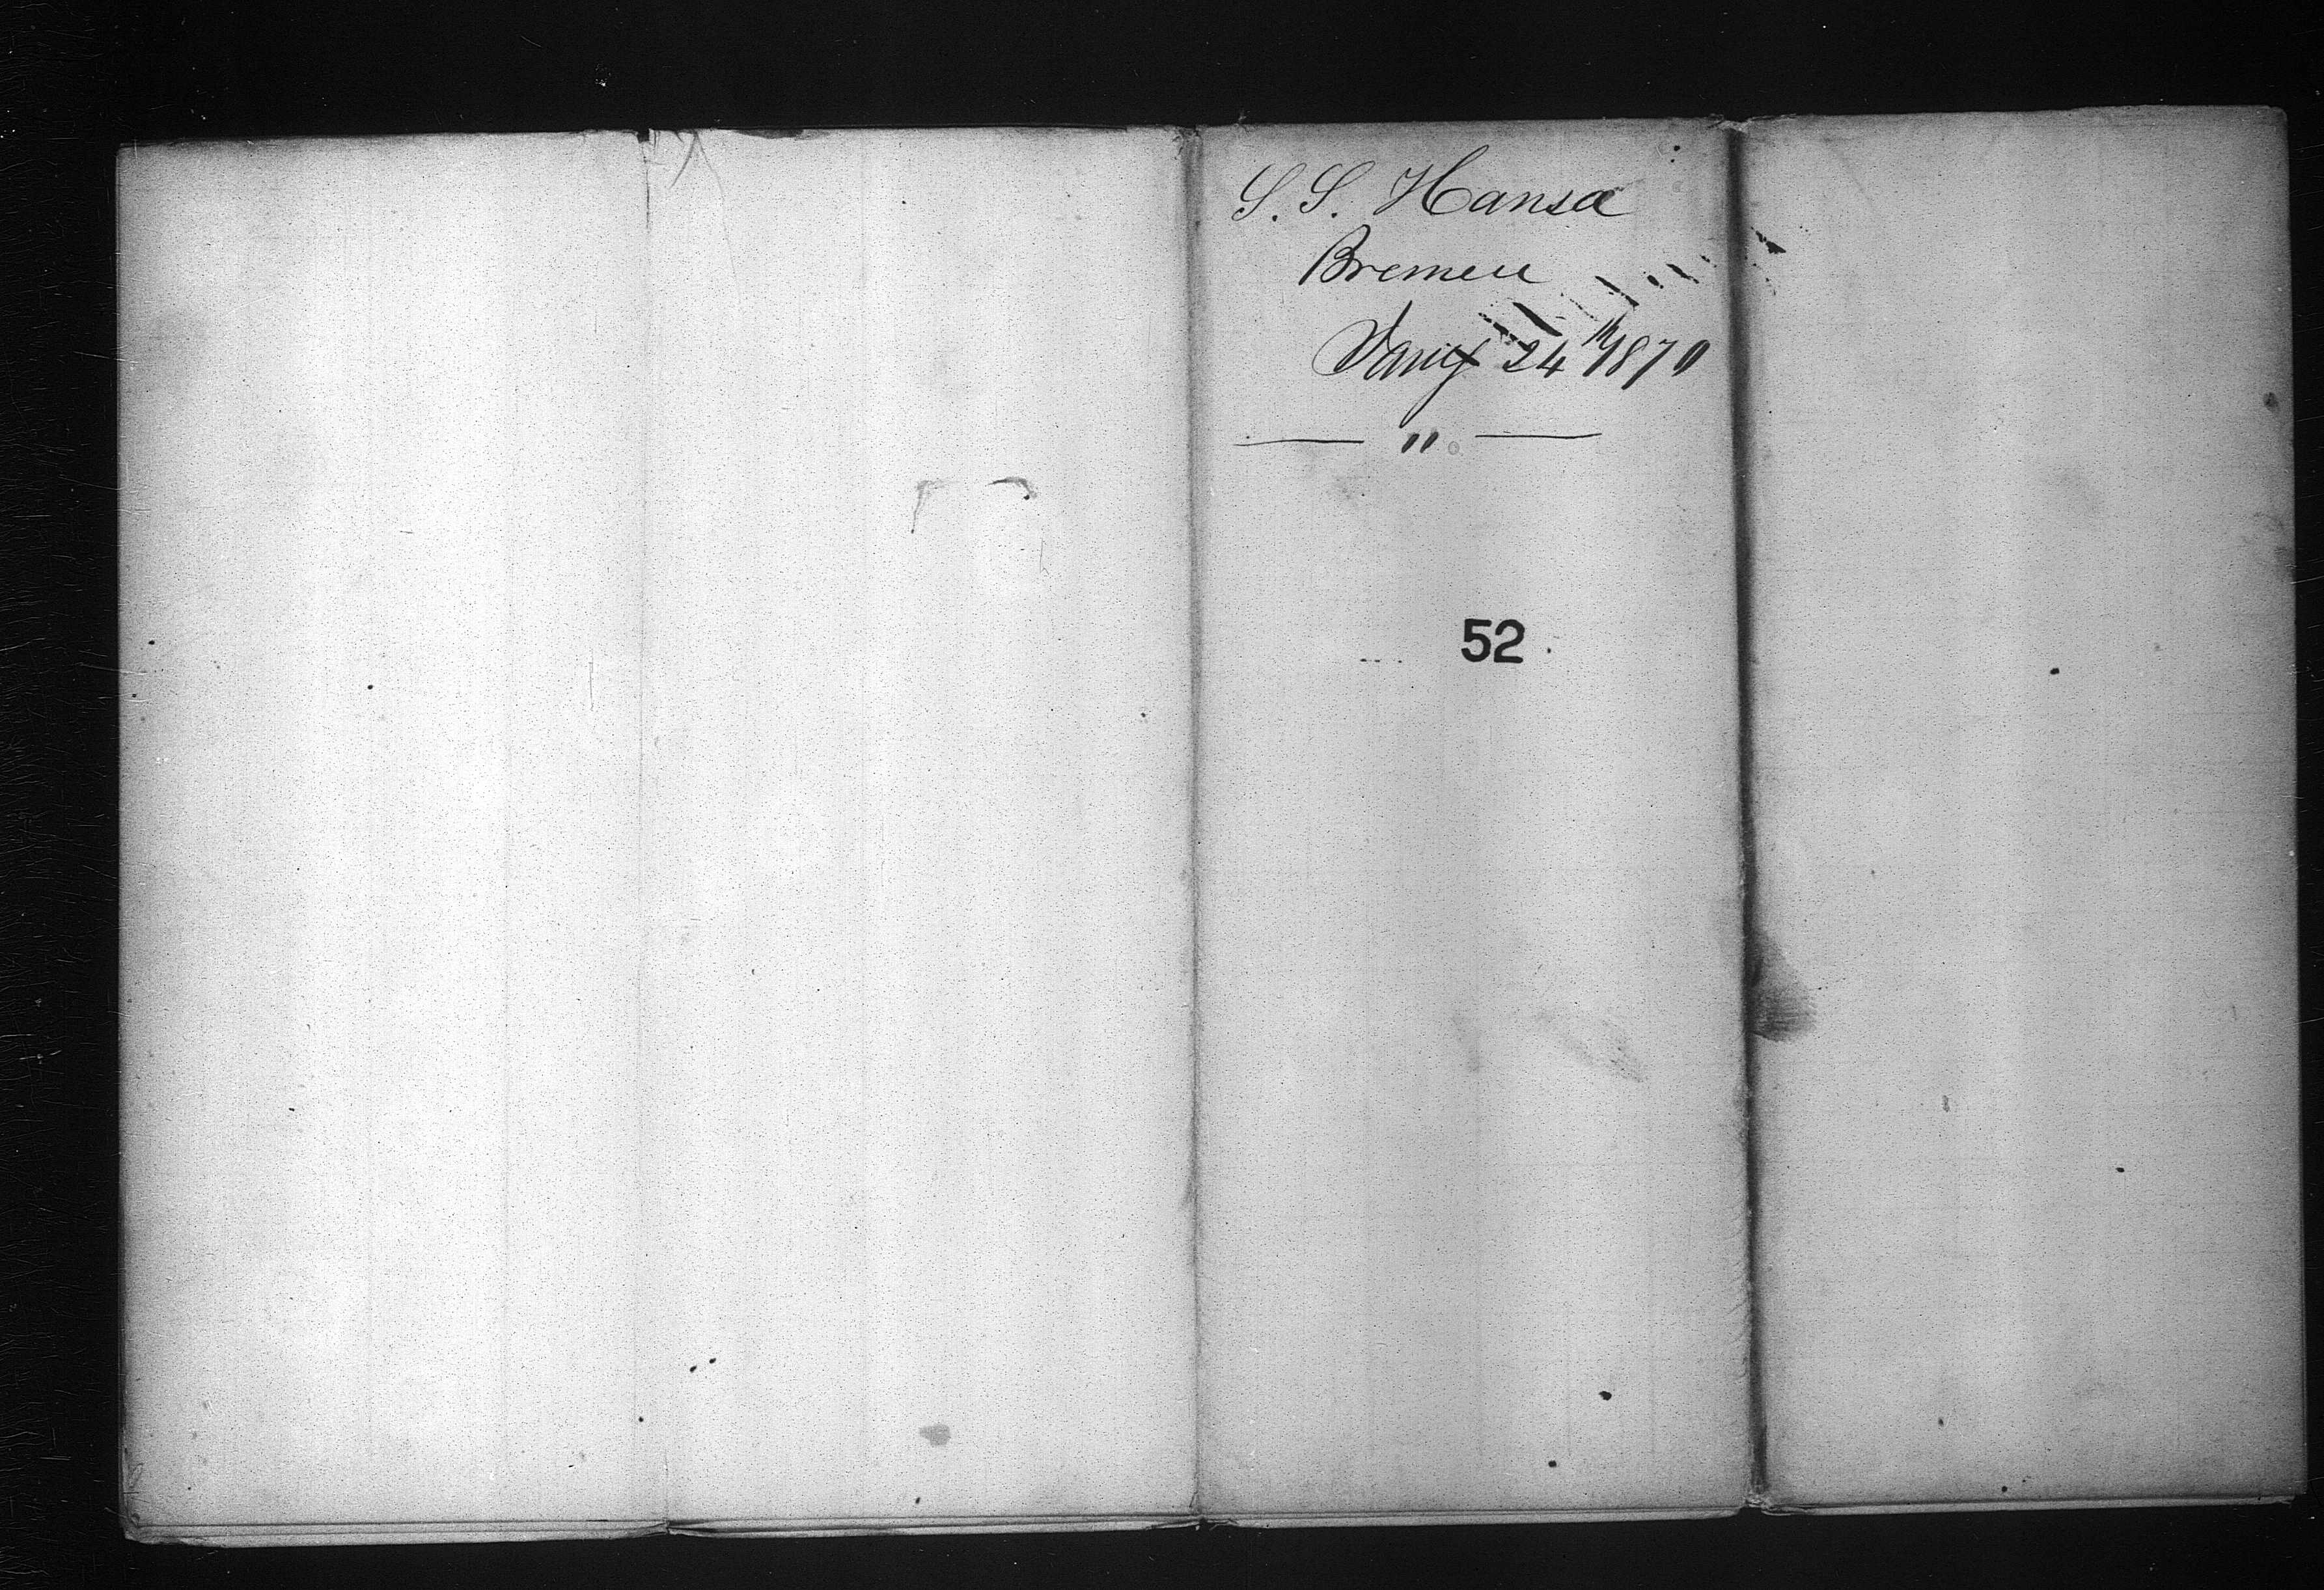 S. S. Hansa
Bremen
Jany 24th 1870
— " —
52